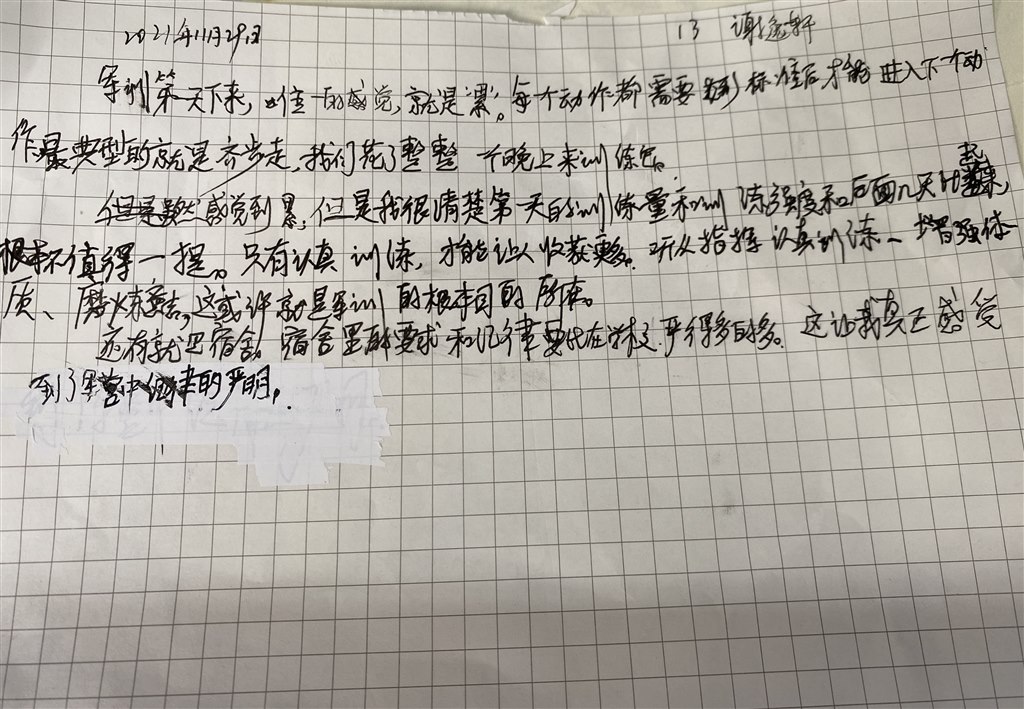 2021年11月29日 13 谢逸轩
军训第一天下来,唯一的感觉,就是累。每个动作都需要达到标准后才能进入下一个动
作,最典型的就是齐步走,我们花了整整一个晚上来训练它。
虽然感觉到累,但是我很清楚第一天的训练量和训练强度和后面几天比起来,
根本不值得一提。只有认真训练,才能让人收获更多。听从指挥认真训练、增强体
质、磨炼意志,这或许就是军训的根本目的所在。
还有就是宿舍。宿舍里的要求和纪律要比在学校严得多的多。这让我真正感受
到了军营中纪律的严明。